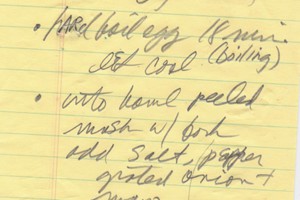 • HARD boil egg 18 min.
let cool (boiling)
• into bowl peeled
mash w/ fork
add salt, pepper
grated onion +
mayo